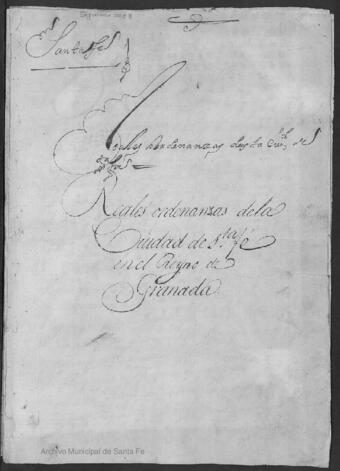 Santa fe
Reales hordenanzas desta Ciu.d de
Reales ordenanzas de la
Ciudad de S.ta fe
en el Reyno de
Granada.
Archivo Municipal de Santa Fe